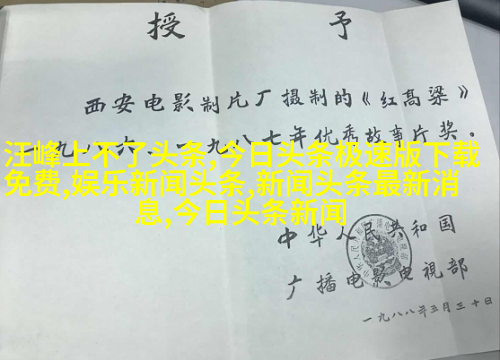 授 予
西安电影制片厂摄制的《红高粱》
一九八六、一九八七年优秀故事片奖。
汪峰上不了头条,今日头条极速版下载
免费,娱乐新闻头条,新闻头条最新消
息,今日头条新闻
中华人民共和国
广播电影电视部
一九八八年三月三十日